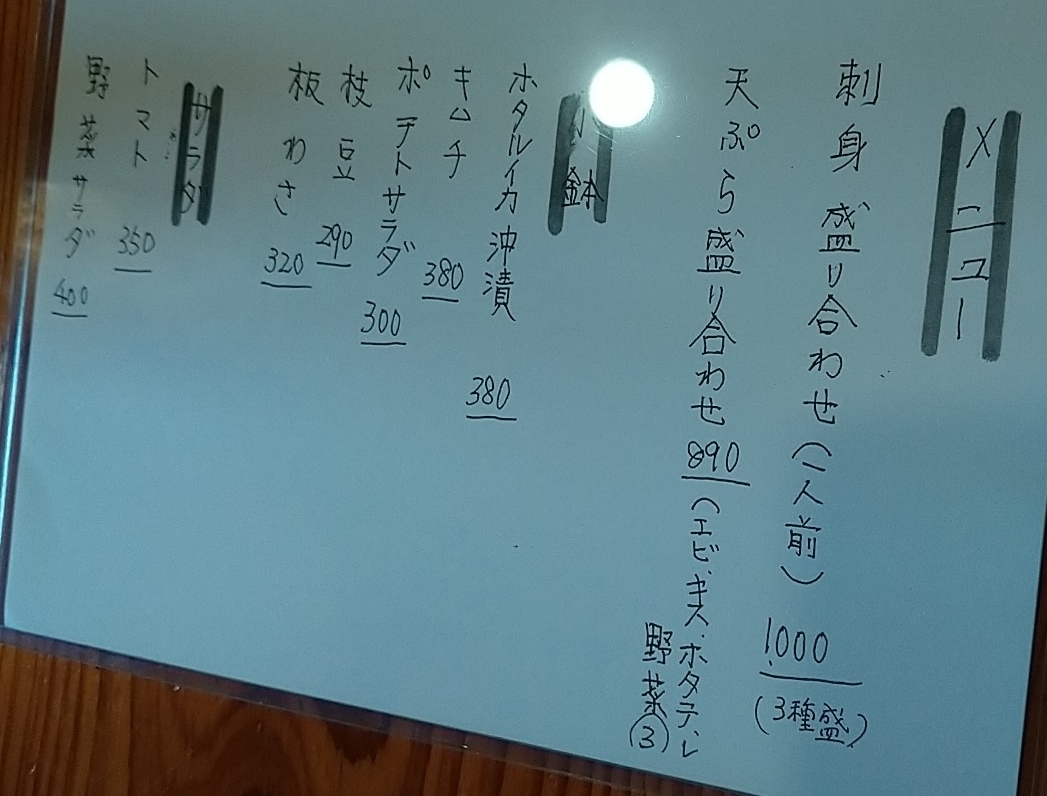 メニュー
刺身盛り合わせ(一人前) 1000
(3種盛)
天ぷら盛り合わせ 890 (エビ・キス・ホタテ・レ
野菜(3)
小鉢
ホタルイカ沖漬 380
キムチ 380
ポテトサラダ 300
枝豆 290
板わさ 320
サラダ
トマト 350
野菜サラダ 400